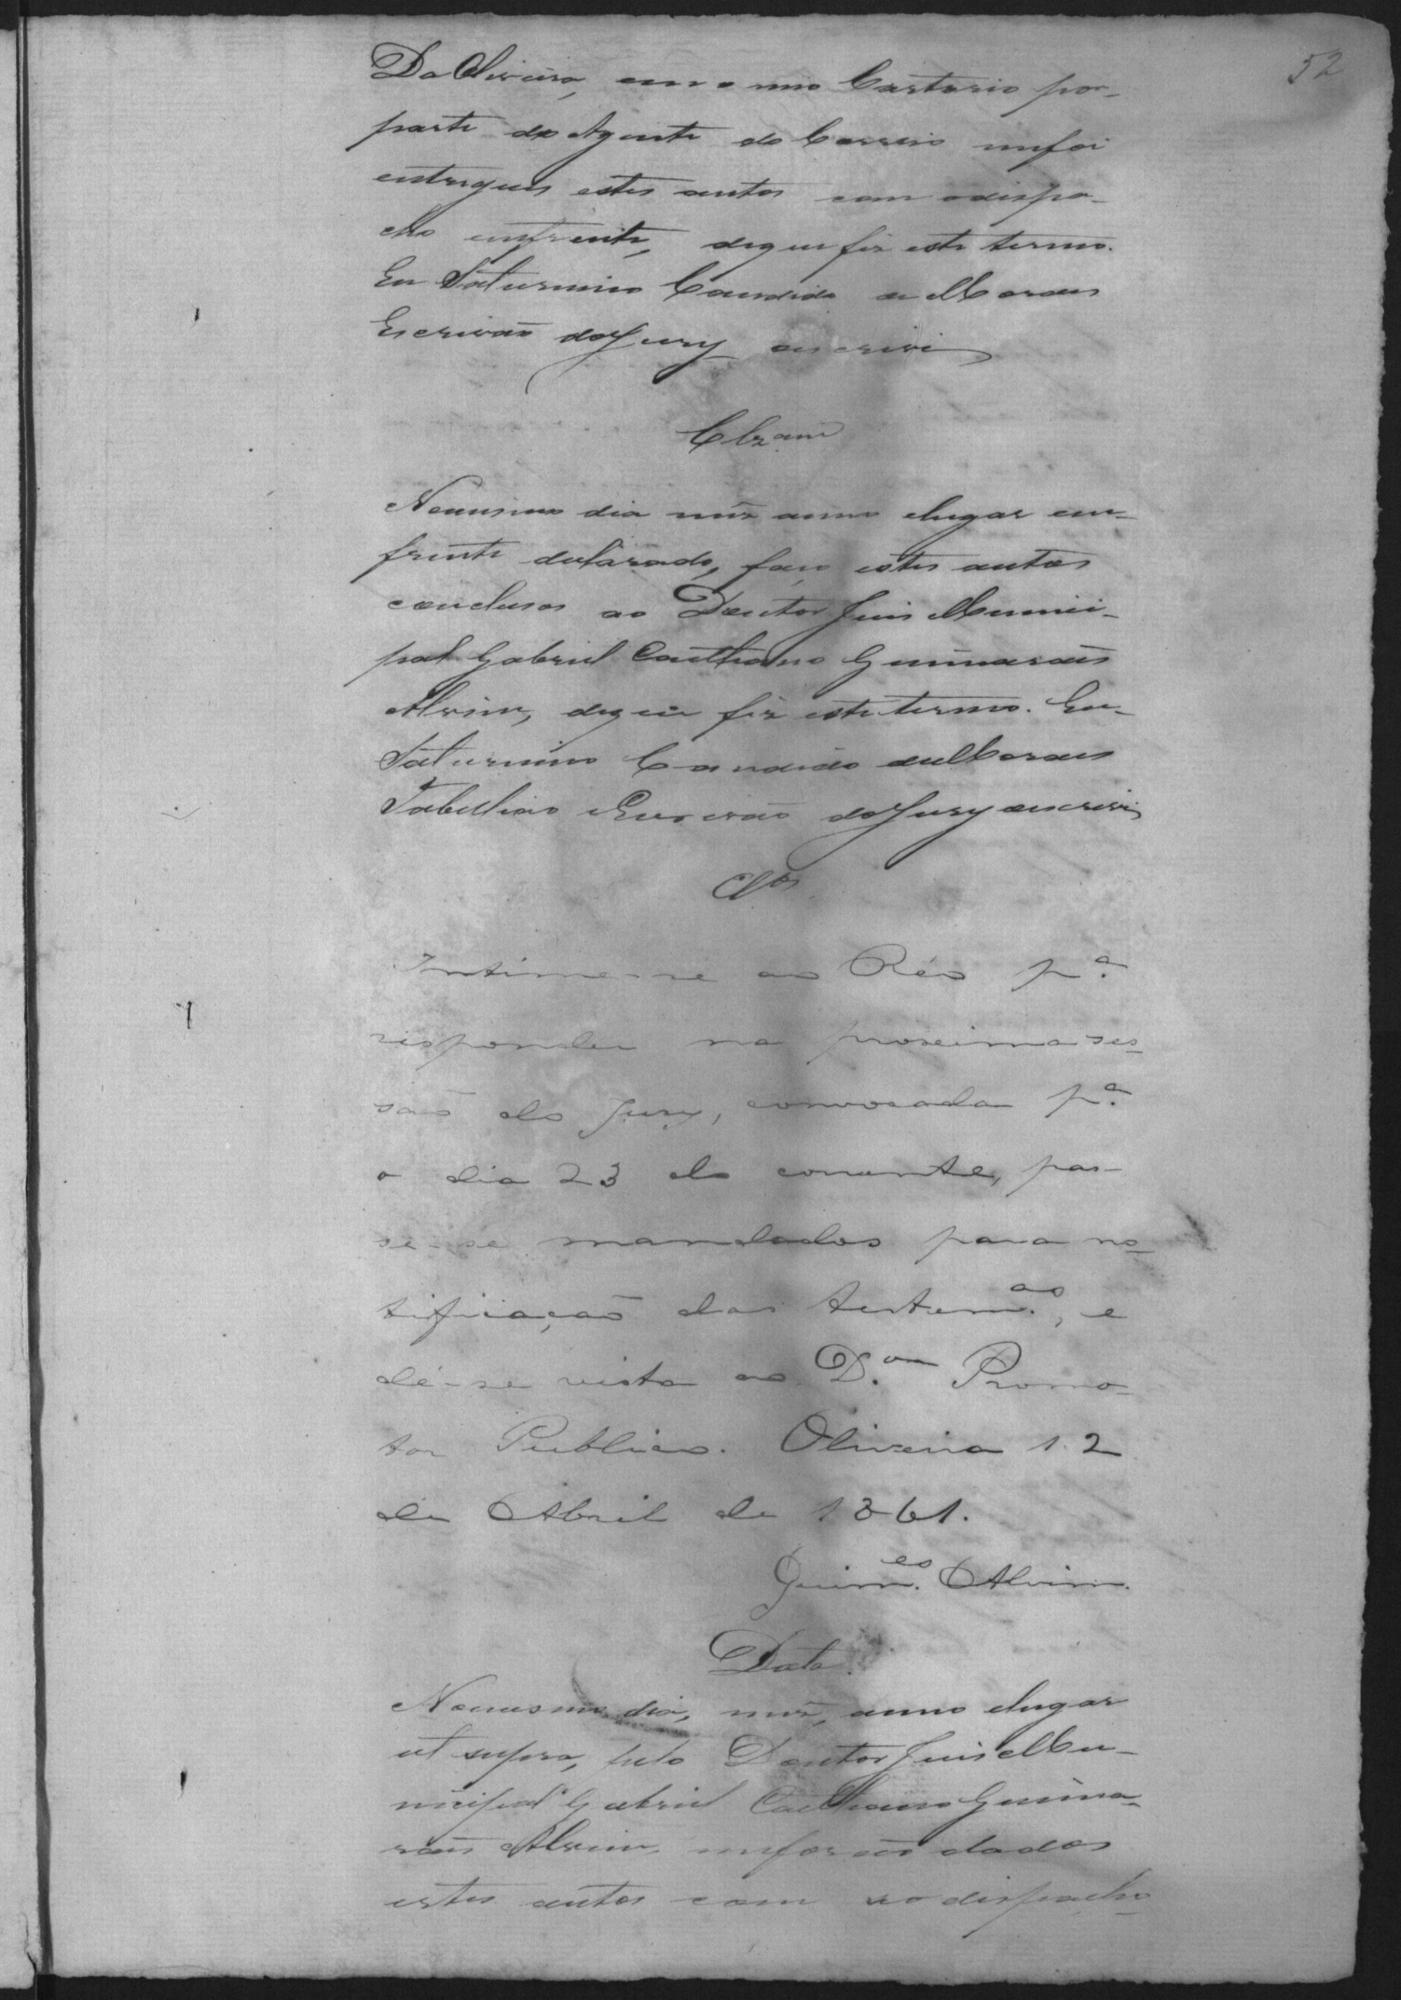 52
Da Oliveira, em o meo Cartorio por
parte do Agente do Correio mefoi
entregues estes autos com odispa-
cho emfrente, dequefiz este termo.
Eu Saturnino Candido de Moraes
Escrivão doJury oescrivi
Clzam
Nomesmo dia mez anno elugar em-
frente declarado, faço estes autos
conclusos ao Doutor Juis Munici-
pal Gabriel Caetano Guimaraes
Alvim, dequi fiz este termo. Eu
Saturnino Candido deMoraes
Tabellião eEscrivão doJury oescrivi
Clos
Intime-se ao Réo pª.
responder na proxima ses-
são do Jury, convocada pª.
o dia 23 do corrente, pas-
se-se mandados para no-
tificação das testemas., e
dê-se vista ao D.or Promo-
tor Publico. Oliveira 12
de Abril de 1861.
Guimes. Alvim.
Data.
Nomesmo dia, mez, anno elugar
ut supra, pelo Doutor Juis Mu-
nicipal Gabriel Caetano Guima-
rães Alvim meforão dados
estes autos com seodispacho